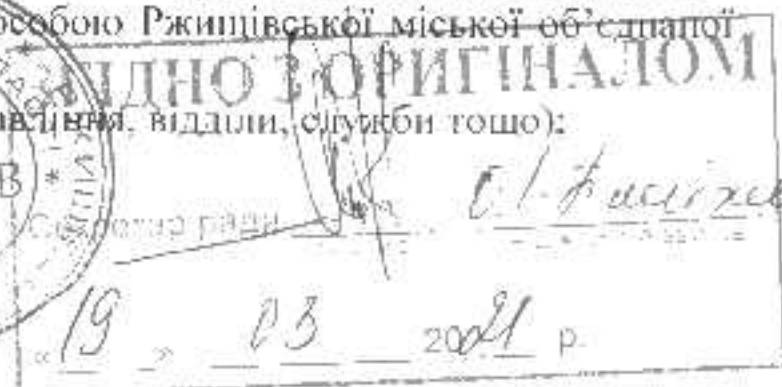 особою Ржищівської міської об’єднаної
ЗГІДНО З ОРИГІНАЛОМ
відділи, служби тощо):
Секретар ради
«19» 03 2021 р.